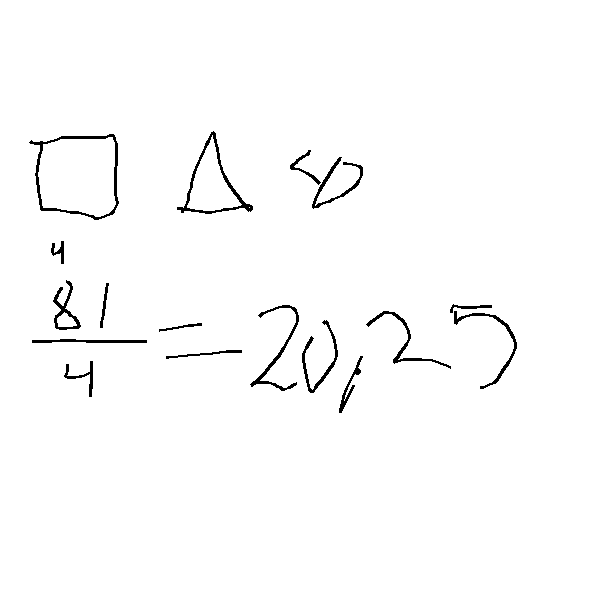 4
81
4
= 20,25